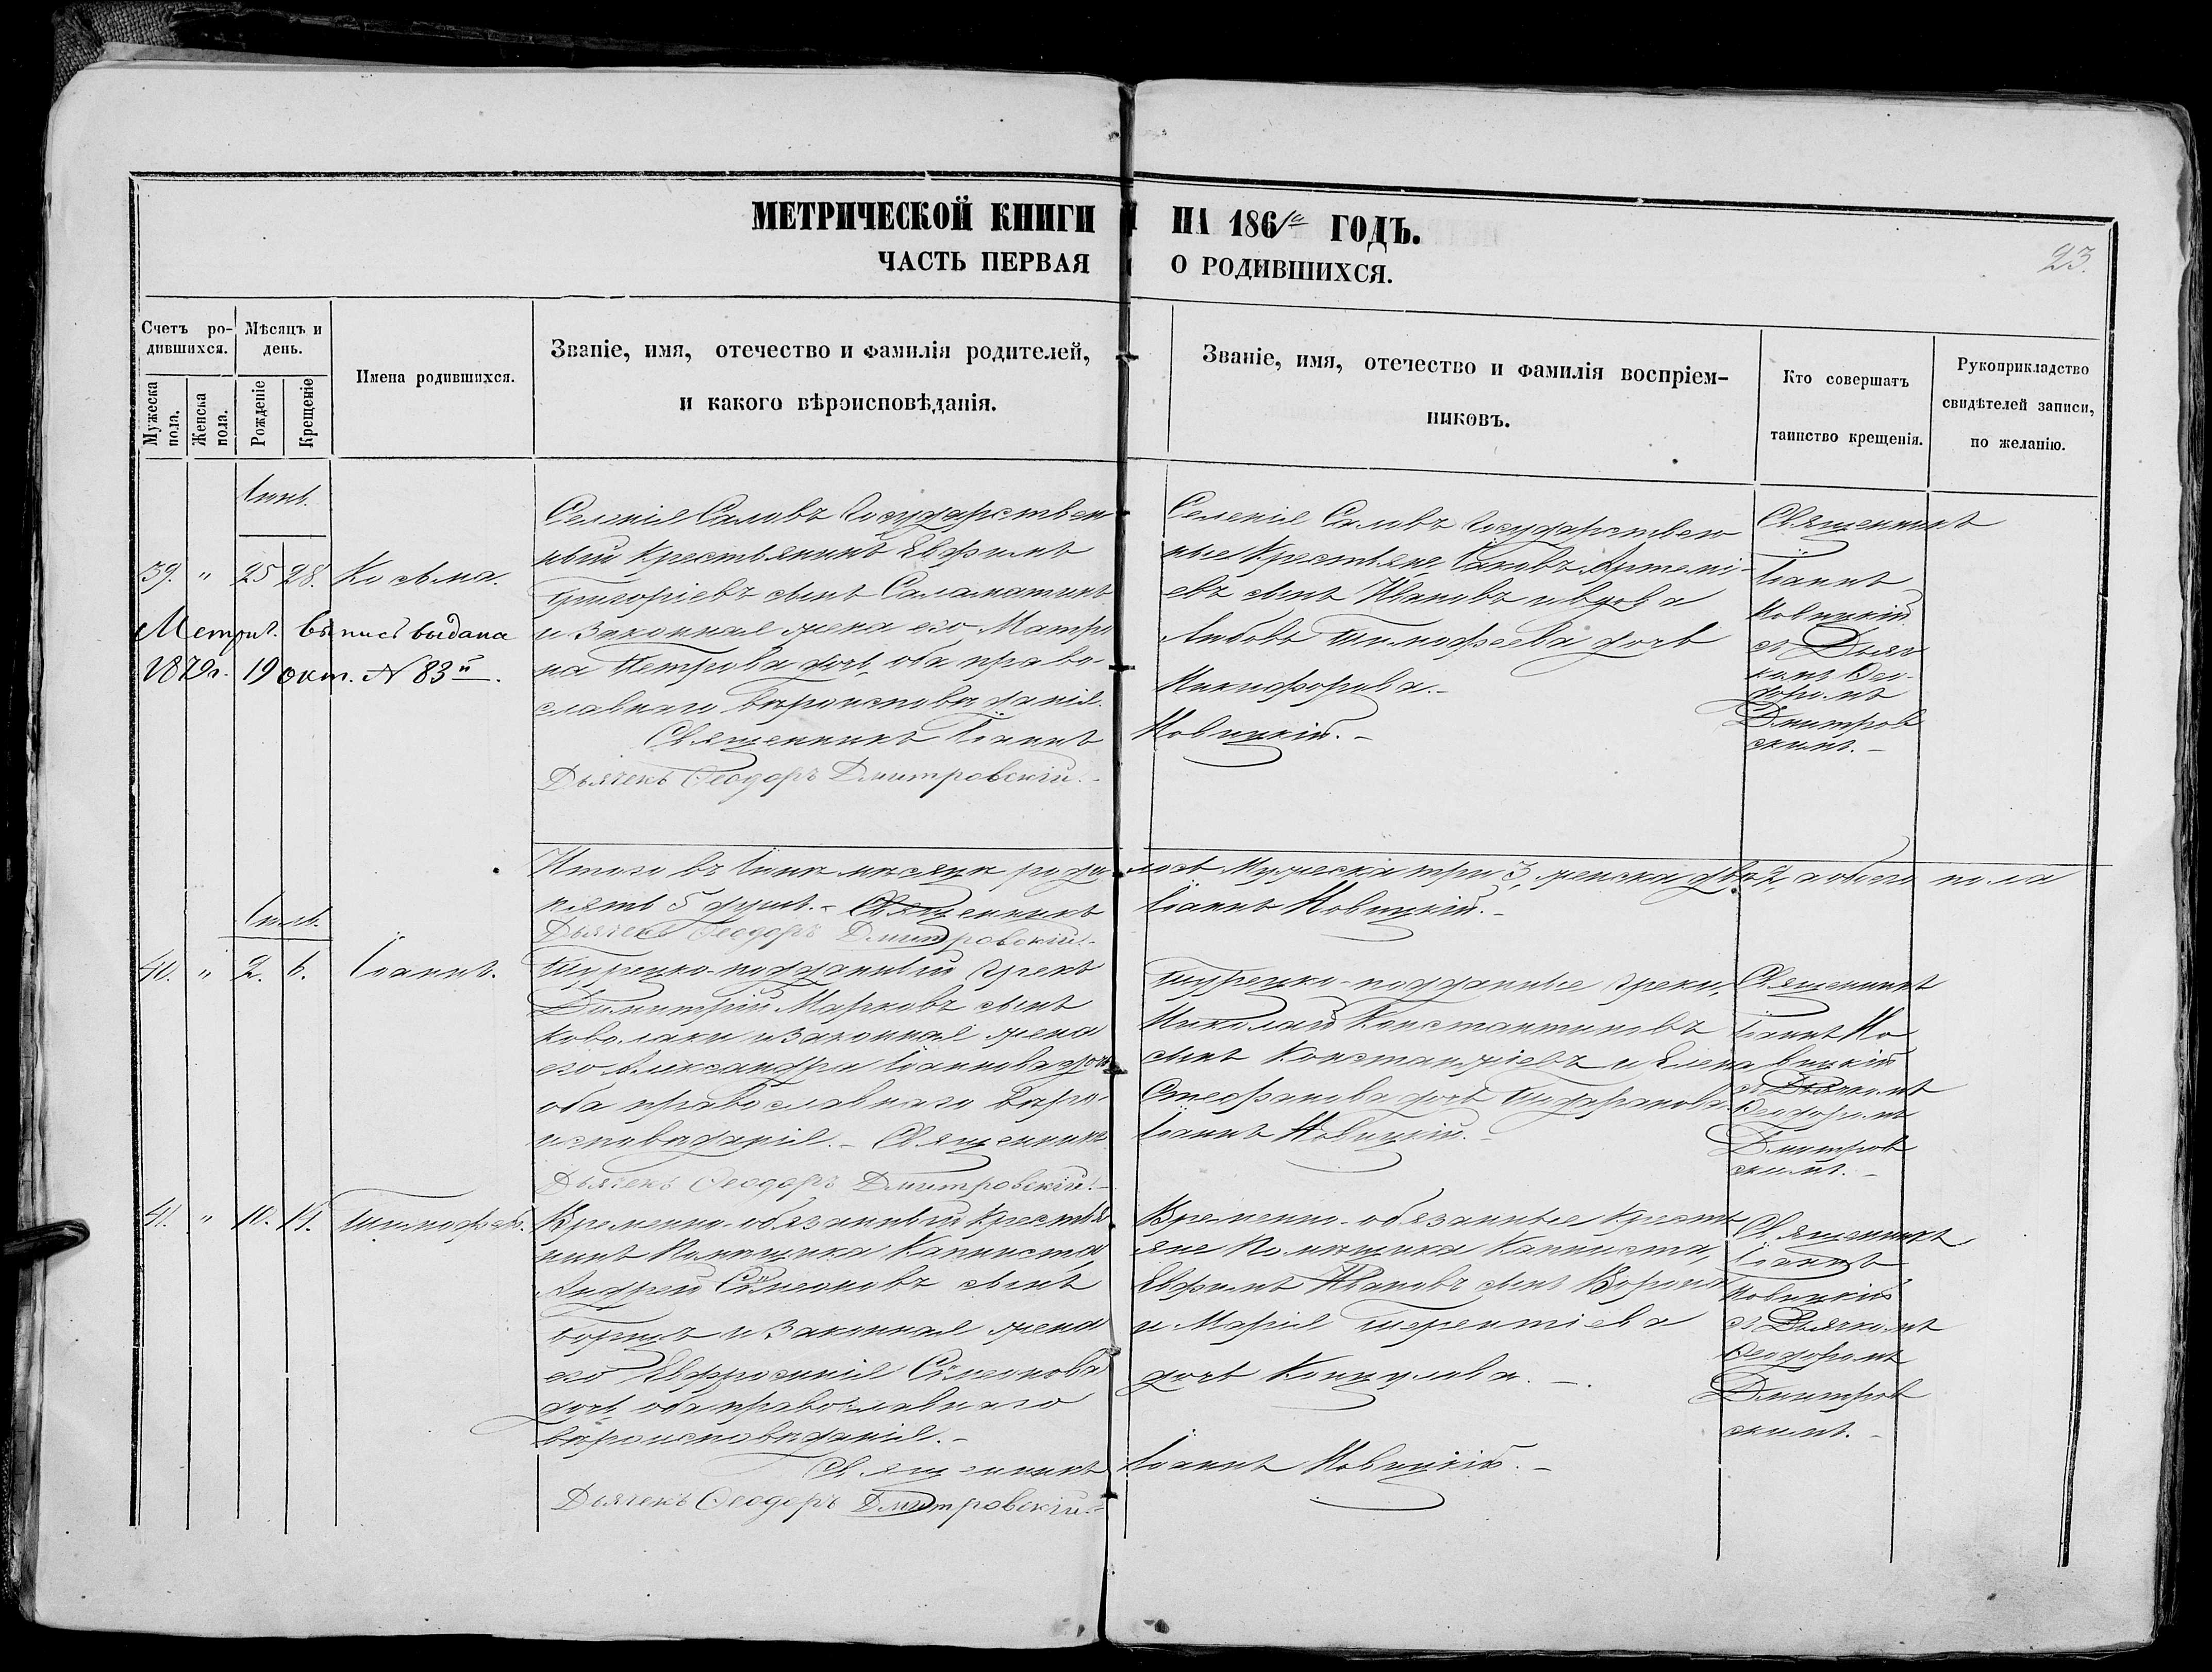 МЕТРИЧЕСКОЙ КНИГИ НА 1861го ГОДЪ.
ЧАСТЬ ПЕРВАЯ О РОДИВШИХСЯ.
23.
Счетъ ро-
дившихся.
Мѣсяцъ и
день.
Имена родившихся.
Званіе, имя, отечество и фамилія родителей,
и какого вѣроисповѣданія.
Званіе, имя, отечество и фамилія воспріем-
никовъ.
Кто совершалъ
таинство крещенія.
Рукоприкладство
свидѣтелей записи,
по желанію.
Мужеска
пола.
Женска
пола.
Рожденіе
Крещеніе
Іюнь.
39. " 25 28. Косьма.
Метрич. выпись выдана
1879г. 19 окт. N 83й.
Селенія Саловъ Государствен
ный Крестьянинъ Евфимъ
Григоріевъ сынъ Саламатинъ
и законная жена его Матро
на Петрова дочь, оба право-
славнаго вѣроисповѣданія.
Священникъ Іоаннъ Новицкій.-
Дьячекъ Ѳеодоръ Дмитровскій.-
Селенія Саловъ Государствен
ные Крестьяне, Іаковъ Артемі-
евъ сынъ Ивановъ и вдова
Любовь Тимофеева дочь
Никифорова.-
Священникъ
Іоаннъ
Новицкій
съ Дьяч
комъ Ѳео-
доромъ
Дмитров
скимъ.-
Итого въ Іюнѣ мѣсяцѣ роди лось Мужеска три 3, женска двѣ 2, а обоего пола
пять 5 душъ.- Священникъ Іоаннъ Новицкій.-
Дьячекъ Ѳеодоръ Дмитровскій.-
Іюль.
40. " 2. 6. Іоаннъ.
Турецко-подданный Грекъ
Димитрій Марковъ сынъ
Коволаки и законная жена
его Александра Іоаннова дочь
оба православнаго вѣро-
исповѣданія.- Священникъ Іоаннъ Новицкій.-
Дьячекъ Ѳеодоръ Дмитровскій.-
Турецко-подданные Греки,
Николай Константиновъ
сынъ и Елена
Стефанова дочь
Священникъ
Іоаннъ Но
вицкій
съ Дьячкомъ
Ѳеодоромъ
Дмитров
скимъ.-
41. " 10. 11. Тимофей.
Временно-обязанный Кресть
нинъ Помѣщика Капниста,
Андрей Симеоновъ сынъ
и законная жена
его Евфросинія Симеонова
дочь, оба православнаго
вѣроисповѣданія.-
Священникъ Іоаннъ Новицкій.-
Дьячекъ Ѳеодоръ Дмитровскій.-
Временно-обязанные Кресть
яне Помѣщика Капниста,
Евфимъ Ивановъ сынъ
и Марія Терентіева
дочь
Священникъ
Іоаннъ
Новицкій
съ Дьячкомъ
Ѳеодоромъ
Дмитров
скимъ.-